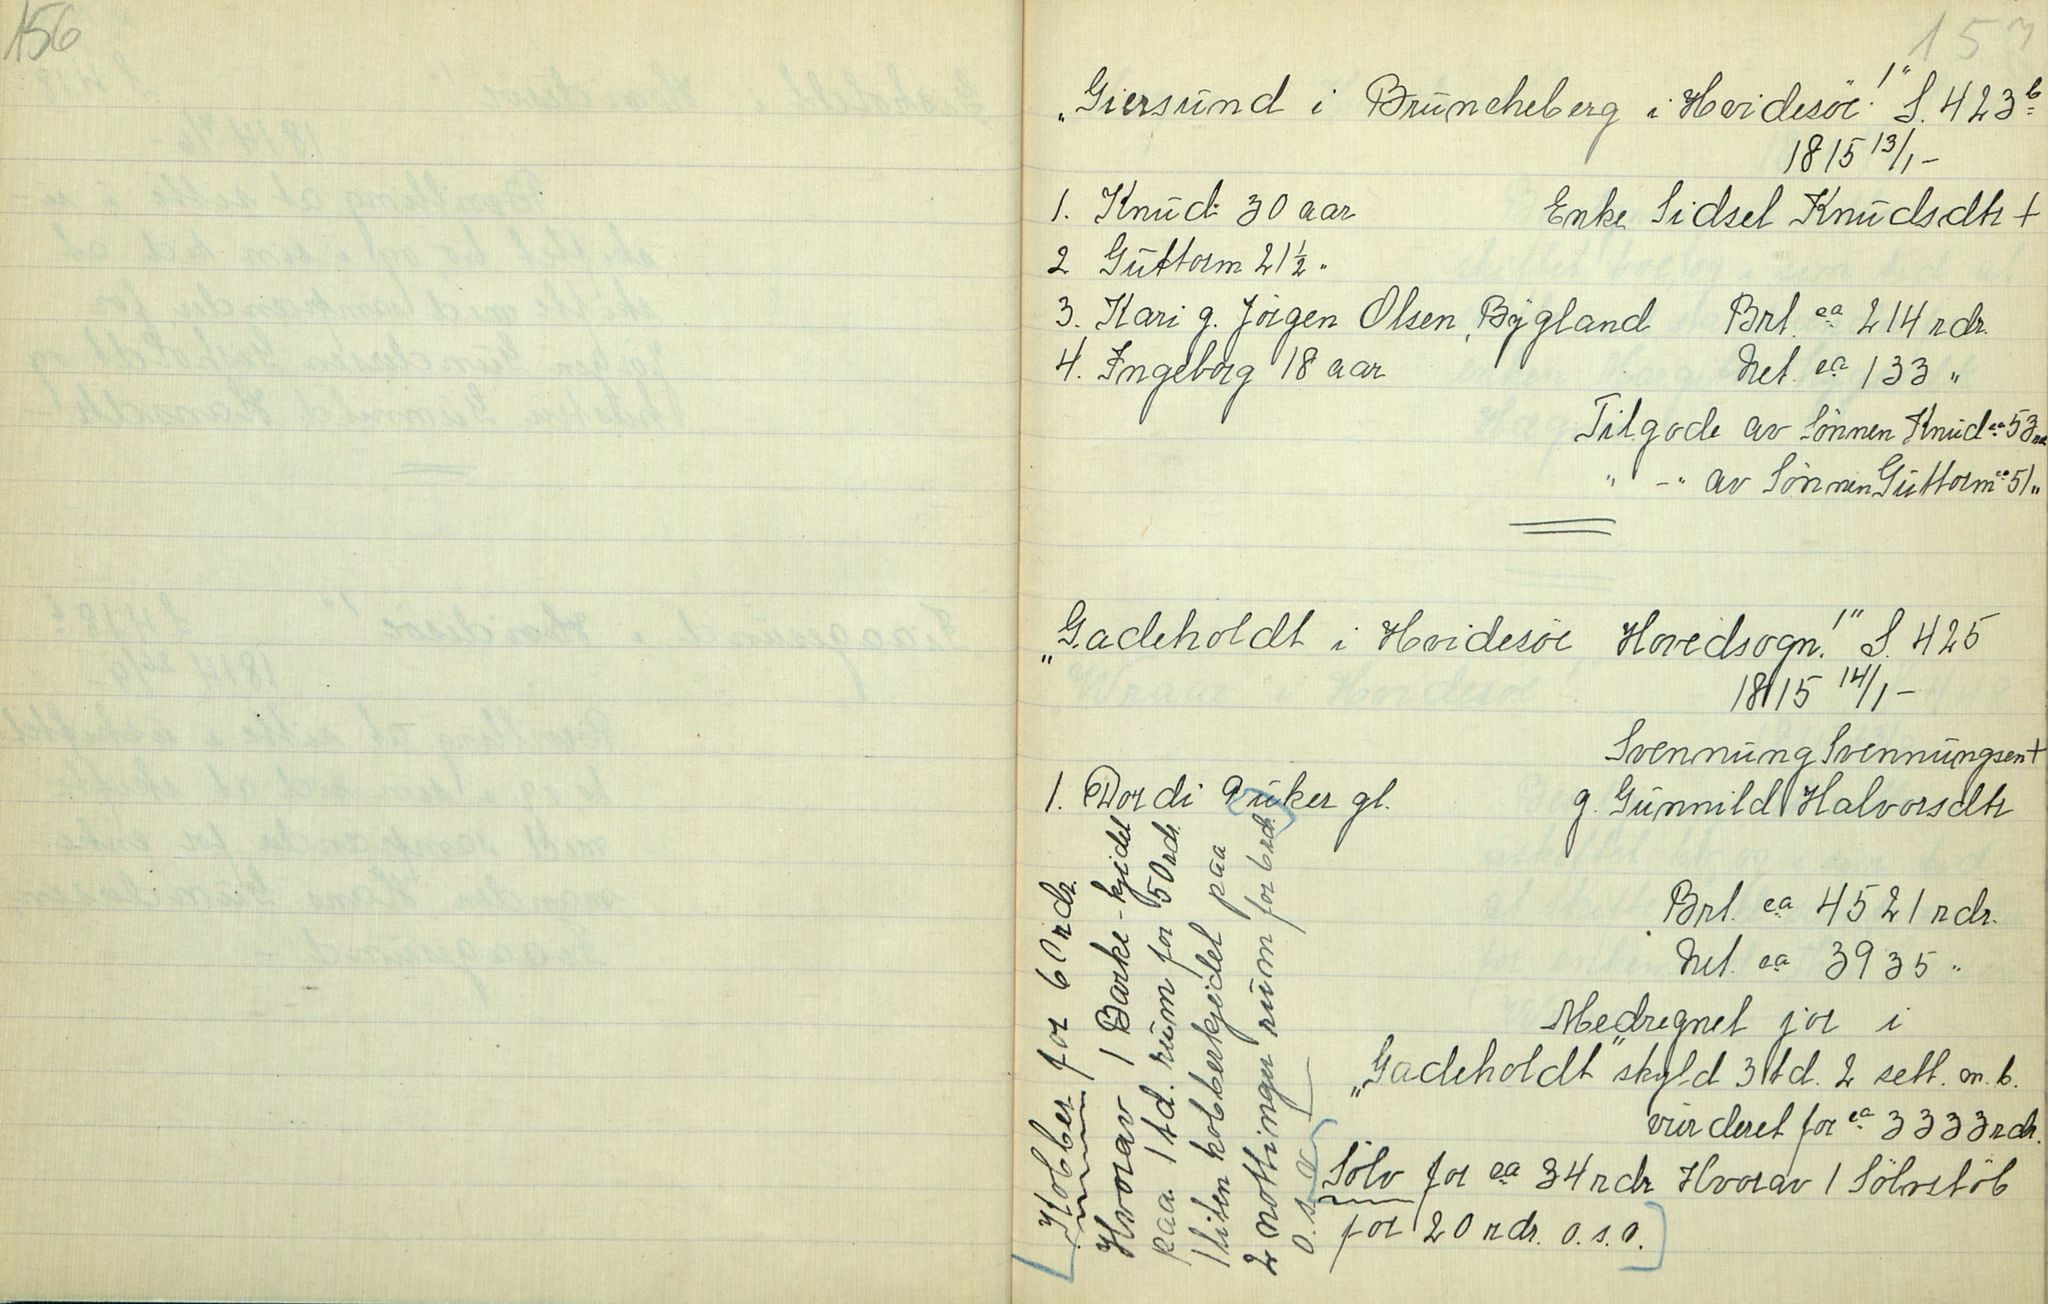 156
157
„Giersund i Bruncheberg i Hvidesöe!" S. 423b
1815 13/1 -
1. Knud 30 aar
Enke Sidsel Knudsdtr +
2 Guttorm 21 1/2 "
3. Kari g. Jörgen Olsen, Bygland
Brt. ca 214 rdr.
4. Ingeborg 18 aar
Net. ca 133 "
Tilgode av Sönnen Knud ca 53 rdr
" - " av Sönnen Guttorm ca 51 "
„Gadeholdt i Hvidesöe Hovedsogn!" S. 425
1815 14/1 -
Svennung Svennungsen +
1. Dordi 9 uker gl.
g. Gunnild Halvorsdtr
Brt. ca 4521 rdr.
Net. ca 3935 "
Medregnet jor i
„Gadeholdt" skyld 3 td. 2 sett. m. b.
vurderet for ca 3333 rdr.
Sölv for ca 34 rdr Hvorav 1 Sölvstöb
for 20 rdr. o. s. v.
Kobber for 60 rdr.
Hvorav 1 Barke-kjedel
paa 1 td. rum for 50 rdr.
1 liten kobberkjedel paa
2 nottinger rum for 6 rdr.
o. s. v.